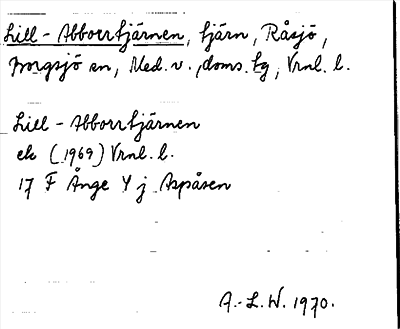 Lill-Abborrtjärnen, tjärn, Råsjö,
Borgsjö sn, Med. v., doms. tg, Vrnl. l.
Lill-Abborrtjärnen
ek (1969) Vrnl. l.
17 F Ånge Y j Aspåsen
A.-L.W. 1970.